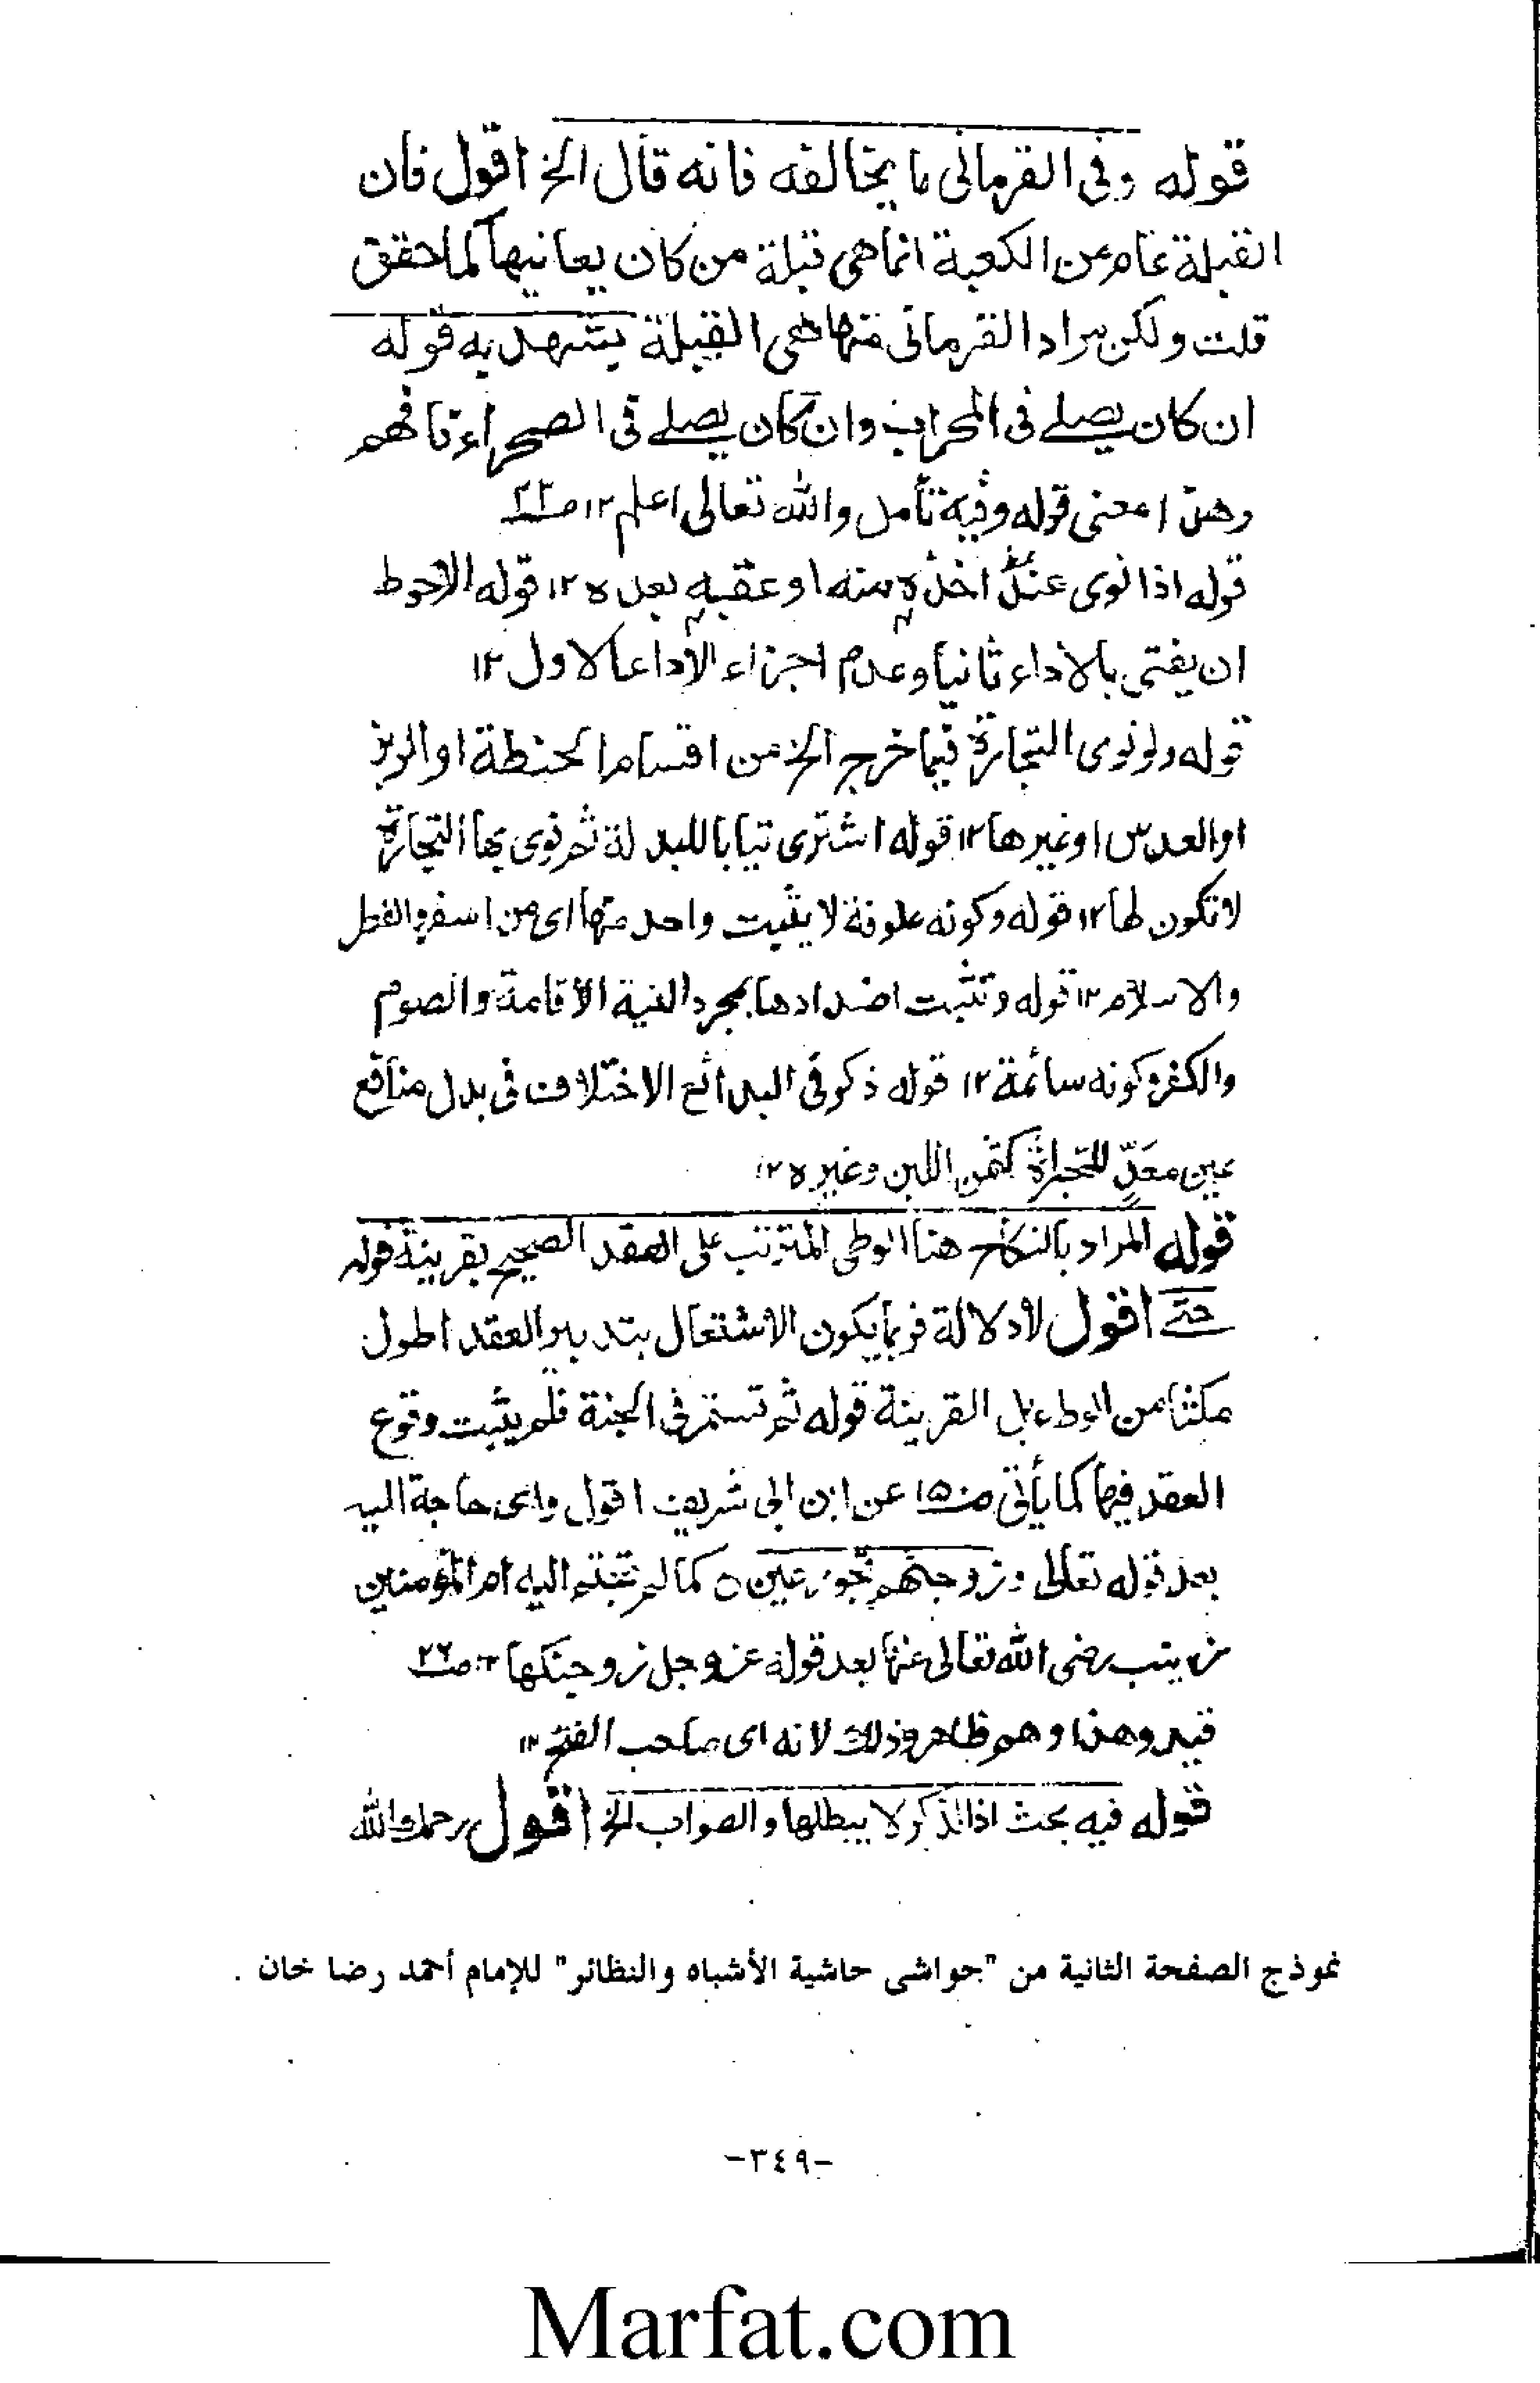 قوله وفى القرمانى ما يخالفه فانه قال الخ اقول فان
القبلة عامر عن الكعبة انما هى قبلة من كان يعانيها كما حقق
قلت ولكن مراد القرمانى منها هى القبلة يشهد به قوله
ان كان يصلے فى المحراب وان كان يصلے فى الصحراء فافهم
وهذا معنى قوله وفيه تأمل والله تعالى اعلم ١٢ صـ
قوله اذا نوى عند اخذه منه او عقبه بعده ١٢ قوله الاحوط
ان يفتى بالاداء ثانيا وعدم اجزاء الاداء الاول ١٢
قوله ولو نوى التجارة فيما خرج الخ من اقسام الحنطة او الرز
او العدس او غيرها ١٢ قوله اشترى ثيابا للبدلة ثم نوى بها التجارة
لا تكون لها ١٢ قوله وكونه علوفة لا يثبت واحد منها اى من اسفر والفطر
والاسلام ١٢ قوله وتثبت اضدادها بمجرد النية الاقامة والصوم
والكفر وكونه سائمة ١٢ قوله ذكر فى البدائع الاختلاف فى بدل منافع
عين معَدٍّ للتجارة كثمن اللبن وغيره ١٢
قوله المراد بالنكاح هنا الوطى المترتب على العقد الصحيح بقرينة قوله
حتے اقول لا دلالة فربما يكون الاشتغال بتدبير العقد اطول
مكثا من الوطء بل القرينة قوله ثم تستمر فى الجنة فلم يثبت وقوع
العقد فيها كما يأتى صـ١٥ عن ابن ابى شريف اقول واى حاجة اليه
بعد قوله تعالى وزوجنهم بحور عين ○ كما لم تحتج اليه ام المؤمنين
زينب رضى الله تعالى عنها بعد قوله عز وجل زوجنكها ١٢ صـ٢٦
قيد وهذا وهم ظاهر وذلك لانه اى صاحب الفتح ١٢
قوله فيه بحث اذا لذكر لا يبطلها والصواب الخ اقول رحمك الله
نموذج الصفحة الثانية من "جواشى حاشية الأشباه والنظائر" للإمام أحمد رضا خان .
-٣٤٩-
Marfat.com